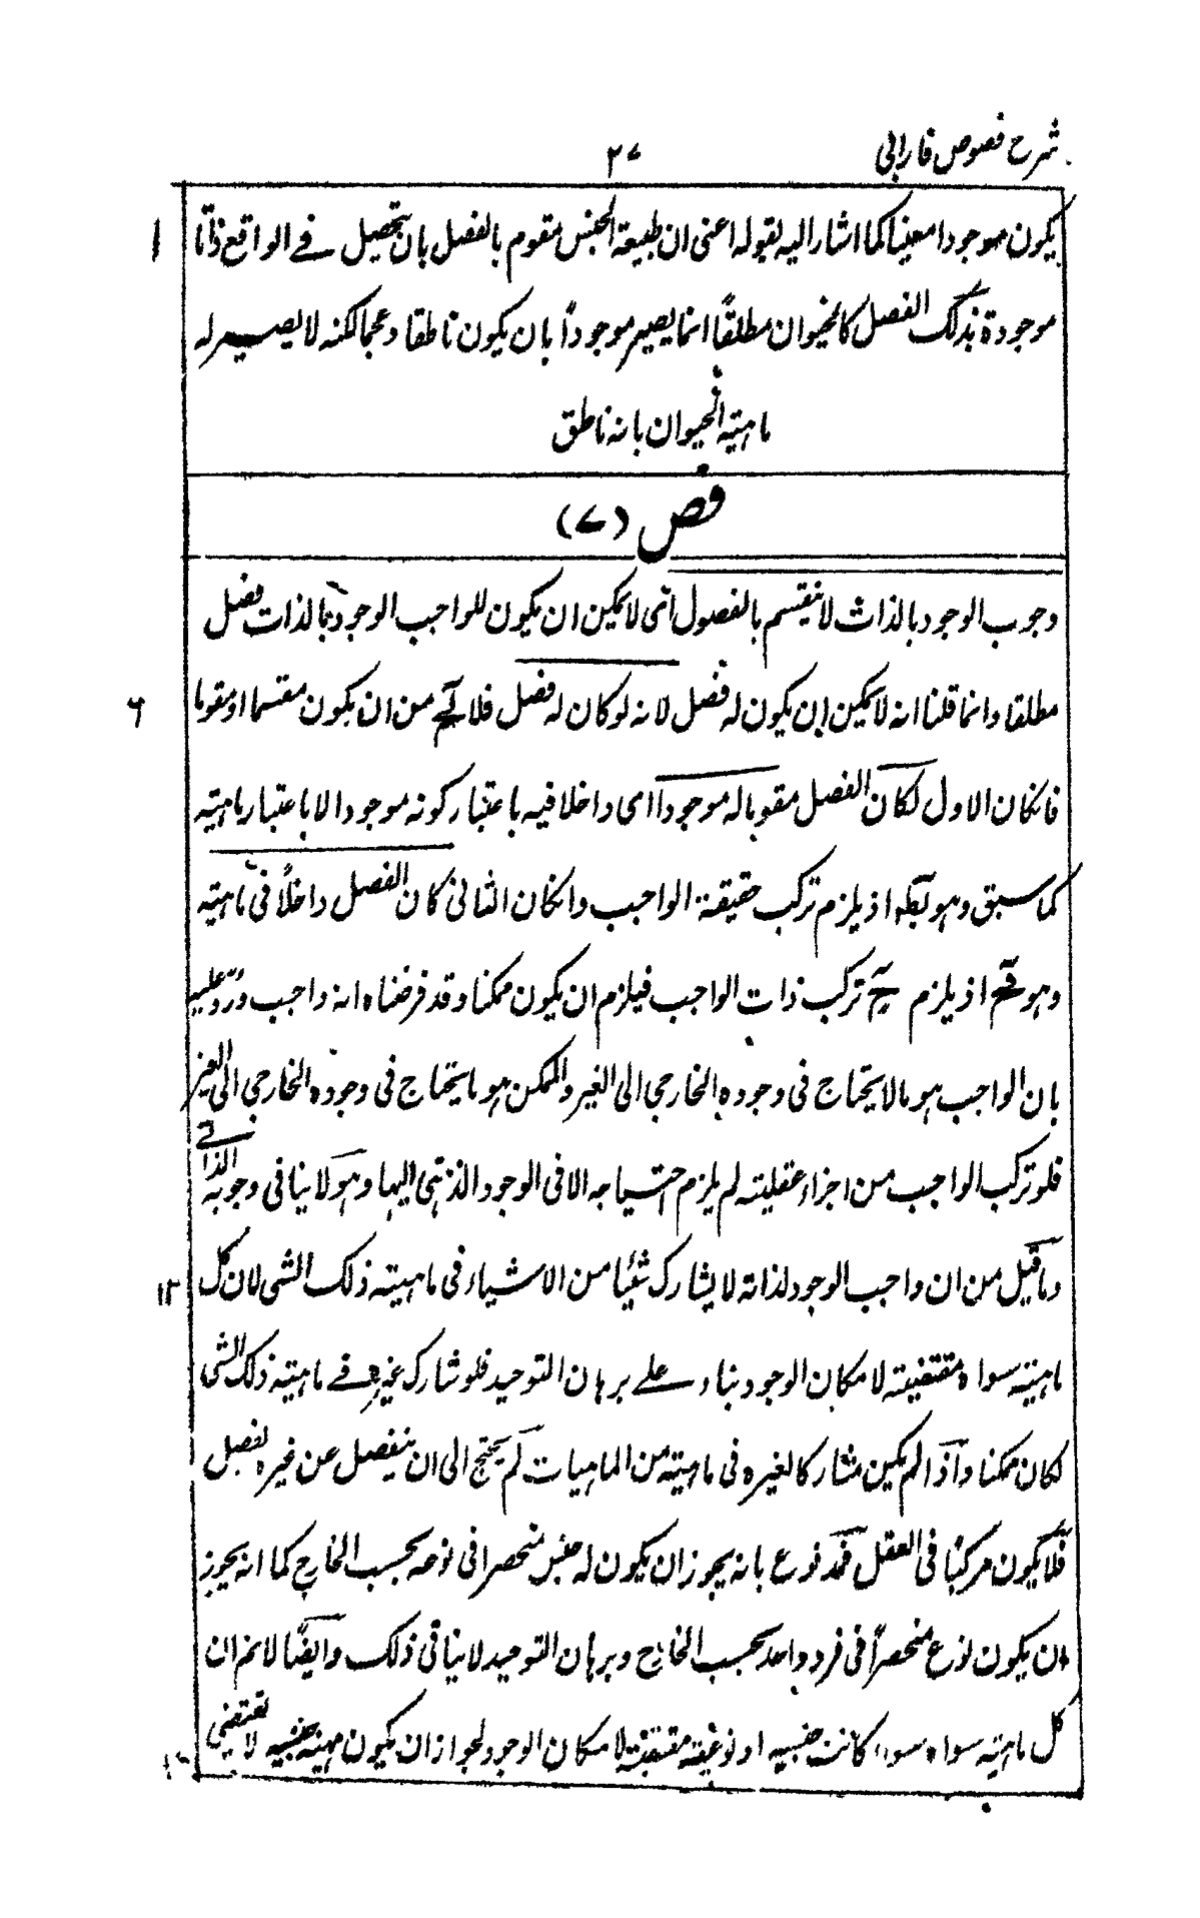 شرح فصوص فارابی
۲۷
یکون موجودا معینا کما اشار الیه بقوله اعنی ان طبیعة الجنس مقوم بالفصل بان یتحصل فی الواقع ذاتا
۱
موجودة بذلک الفصل کالحیوان مطلقًا انما یصیر موجودًا بان یکون ناطقا و عجما لکنه لا یصیر له
ماهیة الحیوان بانه ناطق
فص (۷)
وجوب الوجود بالذات لا ینقسم بالفصول ای لا یمکن ان یکون للواجب الوجود بالذات فصل
مطلقا وانما قلنا انه لا یمکن ان یکون له فصل لانه لو کان له فصل فلا یخ من ان یکون مقسما او مقوما
۶
فانکان الاول لکان الفصل مقوما له موجودا ای داخلا فیه باعتبار کونه موجودا لا باعتبار ماهیته
کما سبق وهو بط اذ یلزم ترکب حقیقة الواجب وانکان الثانی کان الفصل داخلًا فی ماهیته
وهو مح اذ یلزم ح ترکب ذات الواجب فیلزم ان یکون ممکنا وقد فرضناه انه واجب ورُدّ علیه
بان الواجب هو مالا یحتاج فی وجوده الخارجی الی الغیر والممکن هو ما یحتاج فی وجوده الخارجی الی الغیر
فلو ترکب الواجب من اجزاء عقلیته لم یلزم احتیاجه الا فی الوجود الذهنی الیها وهو لا ینافی وجوبه الذاتی
وما قیل من ان واجب الوجود لذاته لا یشارک شئیا من الاشیاء فی ماهیته ذلک الشی لان کل
۱۲
ماهیته سواه مقتضیته لامکان الوجود بناء علی برهان التوحید فلو شارک غیره فی ماهیته ذلک الشی
لکان ممکنا و اذا لم یکن مشارکا لغیره فی ماهیته من الماهیات لم یحتج الی ان ینفصل عن غیره بفصل
فلا یکون مرکبًا فی العقل فمدفوع بانه یجوز ان یکون له جنس منحصرا فی نوعه بحسب الخارج کما انه یجوز
ان یکون نوع منحصرًا فی فرد واحد بحسب الخارج و برهان التوحید لا ینافی ذلک وایضًا لانم ان
کل ماهیته سواه سواء کانت جنسیه او نوعیته مقتضیته لامکان الوجود لجواز ان یکون مهیته جنسیه لا تقتضی